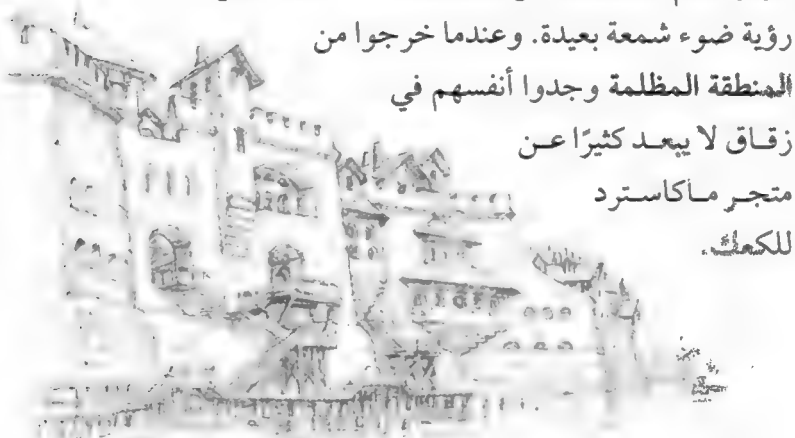 رؤية ضوء شمعة بعيدة. وعندما خرجوا من
المنطقة المظلمة وجدوا أنفسهم في
زقاق لا يبعد كثيرًا عن
متجر ماكاسترد
للكعك.